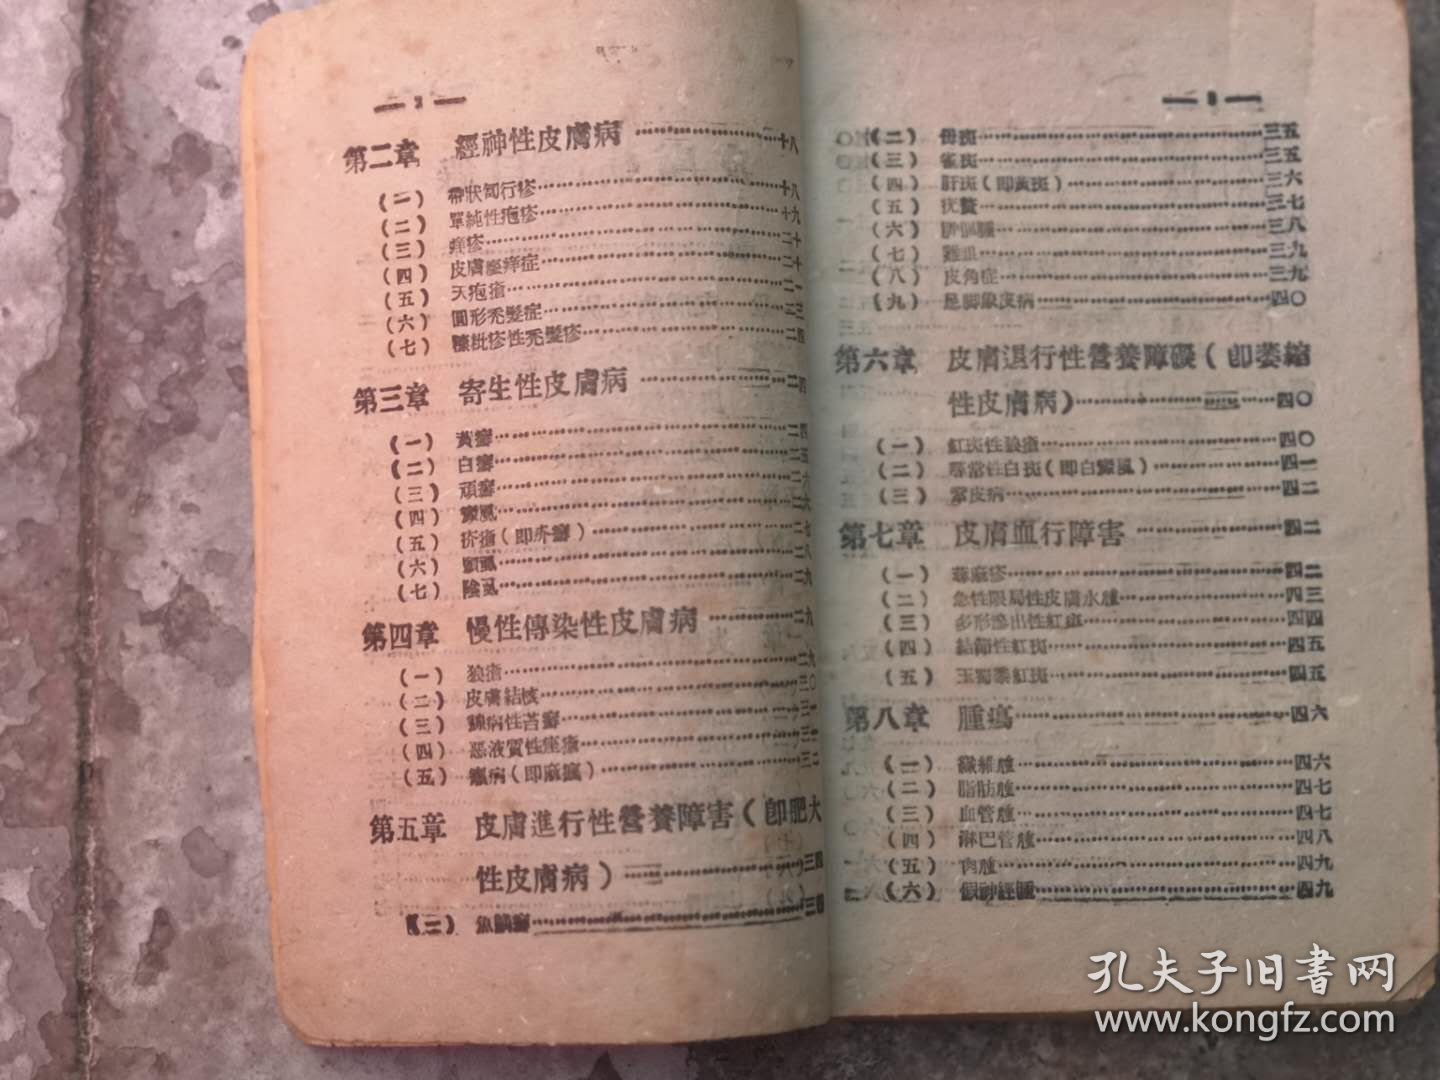 — 2 —
第二章 經神性皮膚病……十八
(一) 帶狀匐行疹……十八
(二) 單純性疱疹……十九
(三) 痒疹……二十
(四) 皮膚瘙痒症……二十
(五) 天疱瘡……二一
(六) 圓形禿髮症……二三
(七) 糠枇疹性禿髮疹……二四
第三章 寄生性皮膚病……二四
(一) 黃癬……二四
(二) 白癬……二五
(三) 頑癬……二六
(四) 癜風……二六
(五) 疥瘡(即疥癬)……二七
(六) 頭虱……二八
(七) 陰虱……二九
第四章 慢性傳染性皮膚病……二九
(一) 狼瘡……二九
(二) 皮膚結核……三〇
(三) 腺病性苔癬……三一
(四) 惡液質性痤瘡……三二
(五) 癩病(即麻瘋)……三二
第五章 皮膚進行性營養障害(即肥大
性皮膚病)……三四
魚鱗癬……三四
— 3 —
(二) 母斑……三五
(三) 雀斑……三五
(四) 肝斑(即黃斑)……三六
(五) 疣贅……三七
(六) 胼胝腫……三八
(七) 雞眼……三九
(八) 皮角症……三九
(九) 足脚象皮病……四〇
第六章 皮膚退行性營養障礙(即萎縮
性皮膚病)……四〇
(一) 紅斑性狼瘡……四〇
(二) 尋常性白斑(即白癜風)……四一
(三) 鞏皮病……四二
第七章 皮膚血行障害……四二
(一) 蕁麻疹……四二
(二) 急性限局性皮膚水腫……四三
(三) 多形滲出性紅斑……四四
(四) 結節性紅斑……四五
(五) 玉蜀黍紅斑……四五
第八章 腫瘍……四六
(一) 纖維腫……四六
(二) 脂肪腫……四七
(三) 血管腫……四七
(四) 淋巴管腫……四八
(五) 肉腫……四九
(六) 假神經腫……四九
孔夫子旧书网
www.kongfz.com